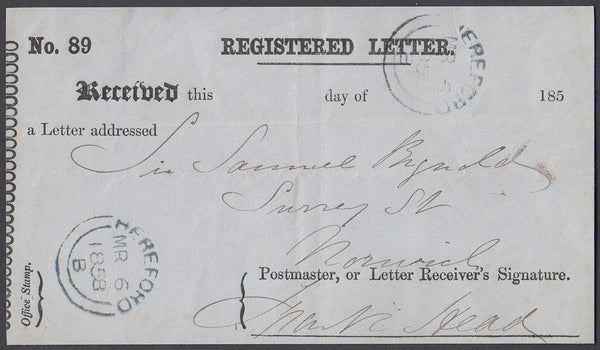 No. 89
REGISTERED LETTER.
HEREFORD
MR 6
1858
B
Received this day of 185
a Letter addressed
Sir Samuel Bignold
Surrey St
Norwich
HEREFORD
MR 6
1858
B
Office Stamp.
Postmaster, or Letter Receiver's Signature.
Head